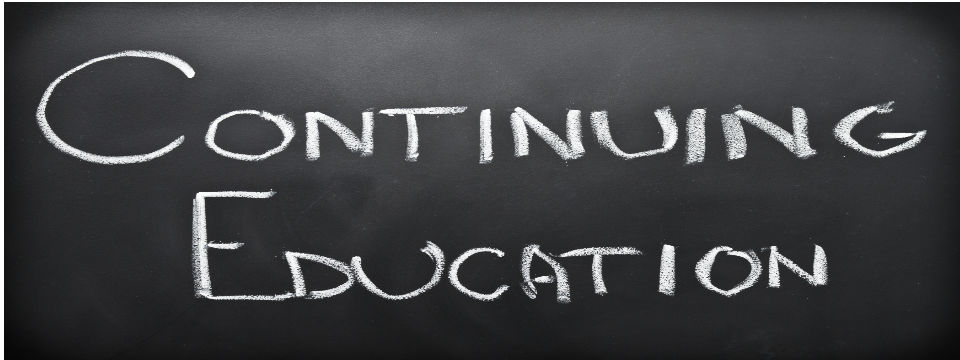 CONTINUING
EDUCATION